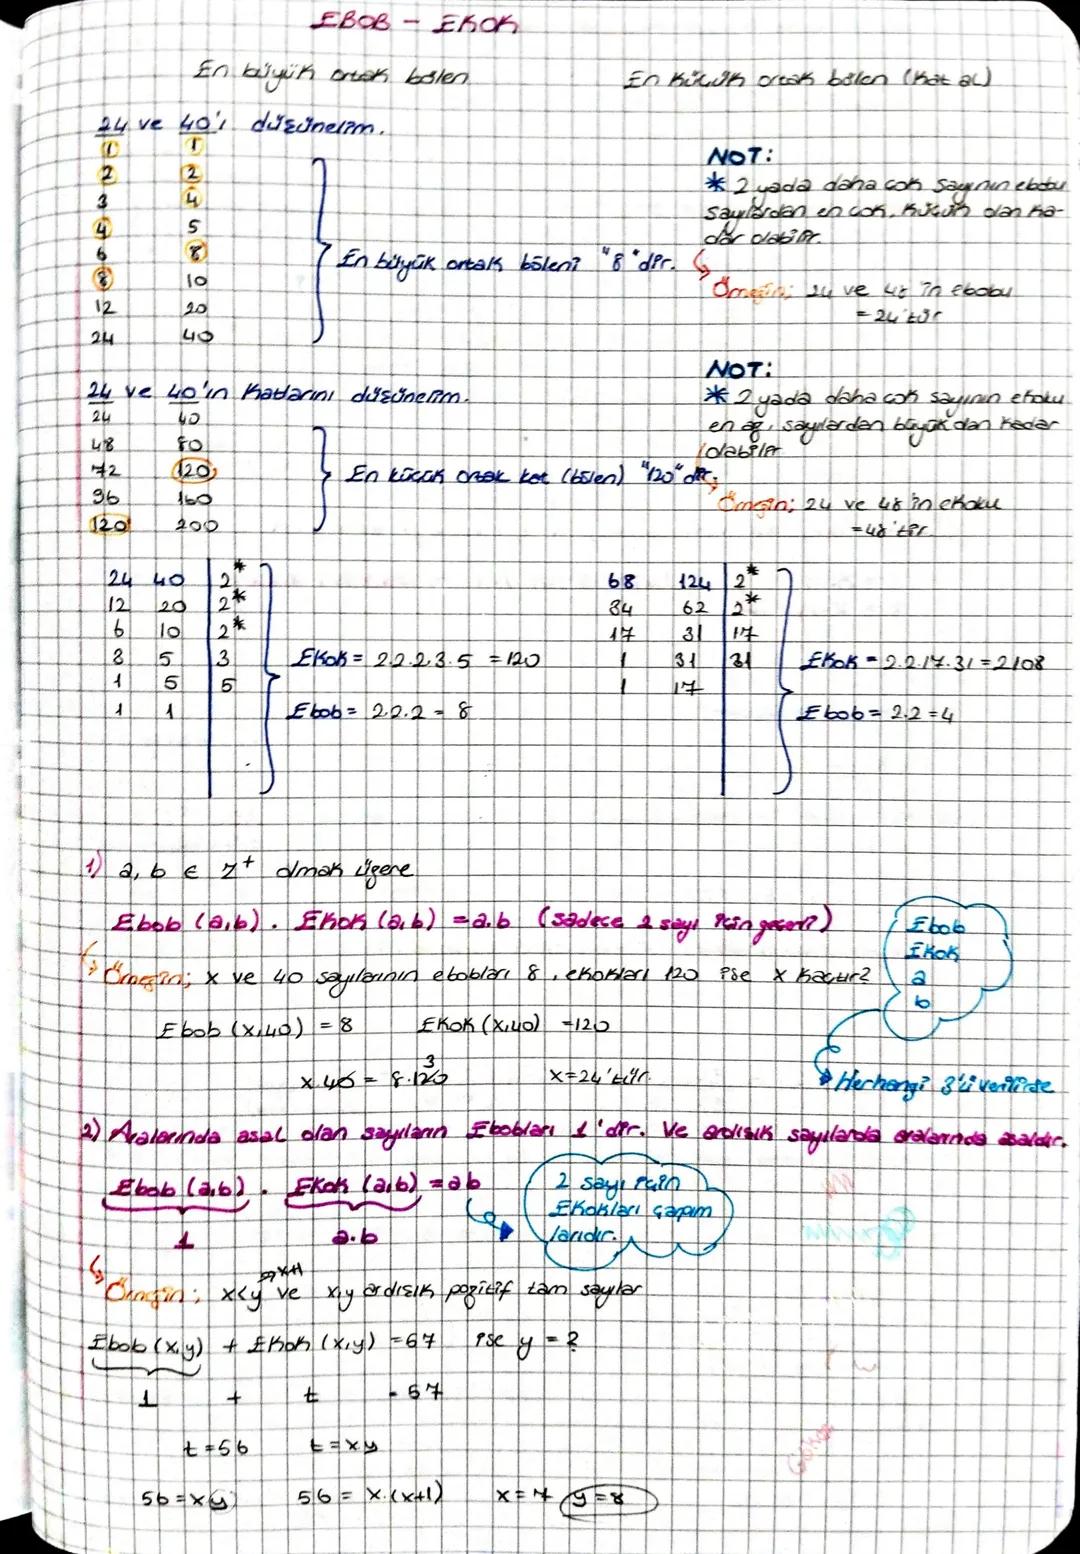 EBOB - EKOK
En büyük ortak bölen
En küçük ortak bölen (kat al)
24 ve 40'ı düşünelim.
1 1
2 2
3 4
4 5
6 8
8 10
12 20
24 40
En büyük ortak böleni "8"dir.
NOT:
* 2 yada daha çok sayının ebobu
sayılardan en çok, küçük olan ka-
dar olabilir.
Örneğin; 24 ve 48 in ebobu
= 24'tür
24 ve 40'ın katlarını düşünelim.
24 40
48 80
72 120
96 160
120 200
En küçük ortak kat (bölen) "120"dir.
NOT:
* 2 yada daha çok sayının ekoku
en az, sayılardan büyük olan kadar
olabilir
Örneğin; 24 ve 48 in ekoku
= 48'tir.
24 40 2*
12 20 2*
6 10 2*
3 5 3
1 5 5
1 1
EKOK = 2.2.2.3.5 = 120
Ebob = 2.2.2 = 8
68 124 2*
34 62 2*
17 31 17
1 31 31
1 17
EKOK = 2.2.17.31 = 2108
Ebob = 2.2 = 4
1) a, b ∈ Z+ olmak üzere
Ebob (a,b) . EKOK (a,b) = a.b (sadece 2 sayı için geçerli)
Ebob
EKOK
a
b
Herhangi 3'ü verilirse
Örneğin; x ve 40 sayılarının ebobları 8, ekokları 120 ise x kaçtır?
Ebob (x,40) = 8 EKOK (x,40) = 120
x.40 = 8.120 3 x=24'tür.
2) Aralarında asal olan sayıların Ebobları 1'dir. Ve ardışık sayılarda aralarında asaldır.
Ebob (a,b) . EKOK (a,b) = ab
1 a.b
2 sayı için
EKokları çarpım
larıdır.
Örneğin; x<y ve x,y ardışık pozitif tam sayılar
x+1
Ebob (x,y) + EKOK (x,y) = 67 ise y = ?
1 + t = 57
t = 56 t = xy
56 = xy 56 = x.(x+1) x = 7 y = 8